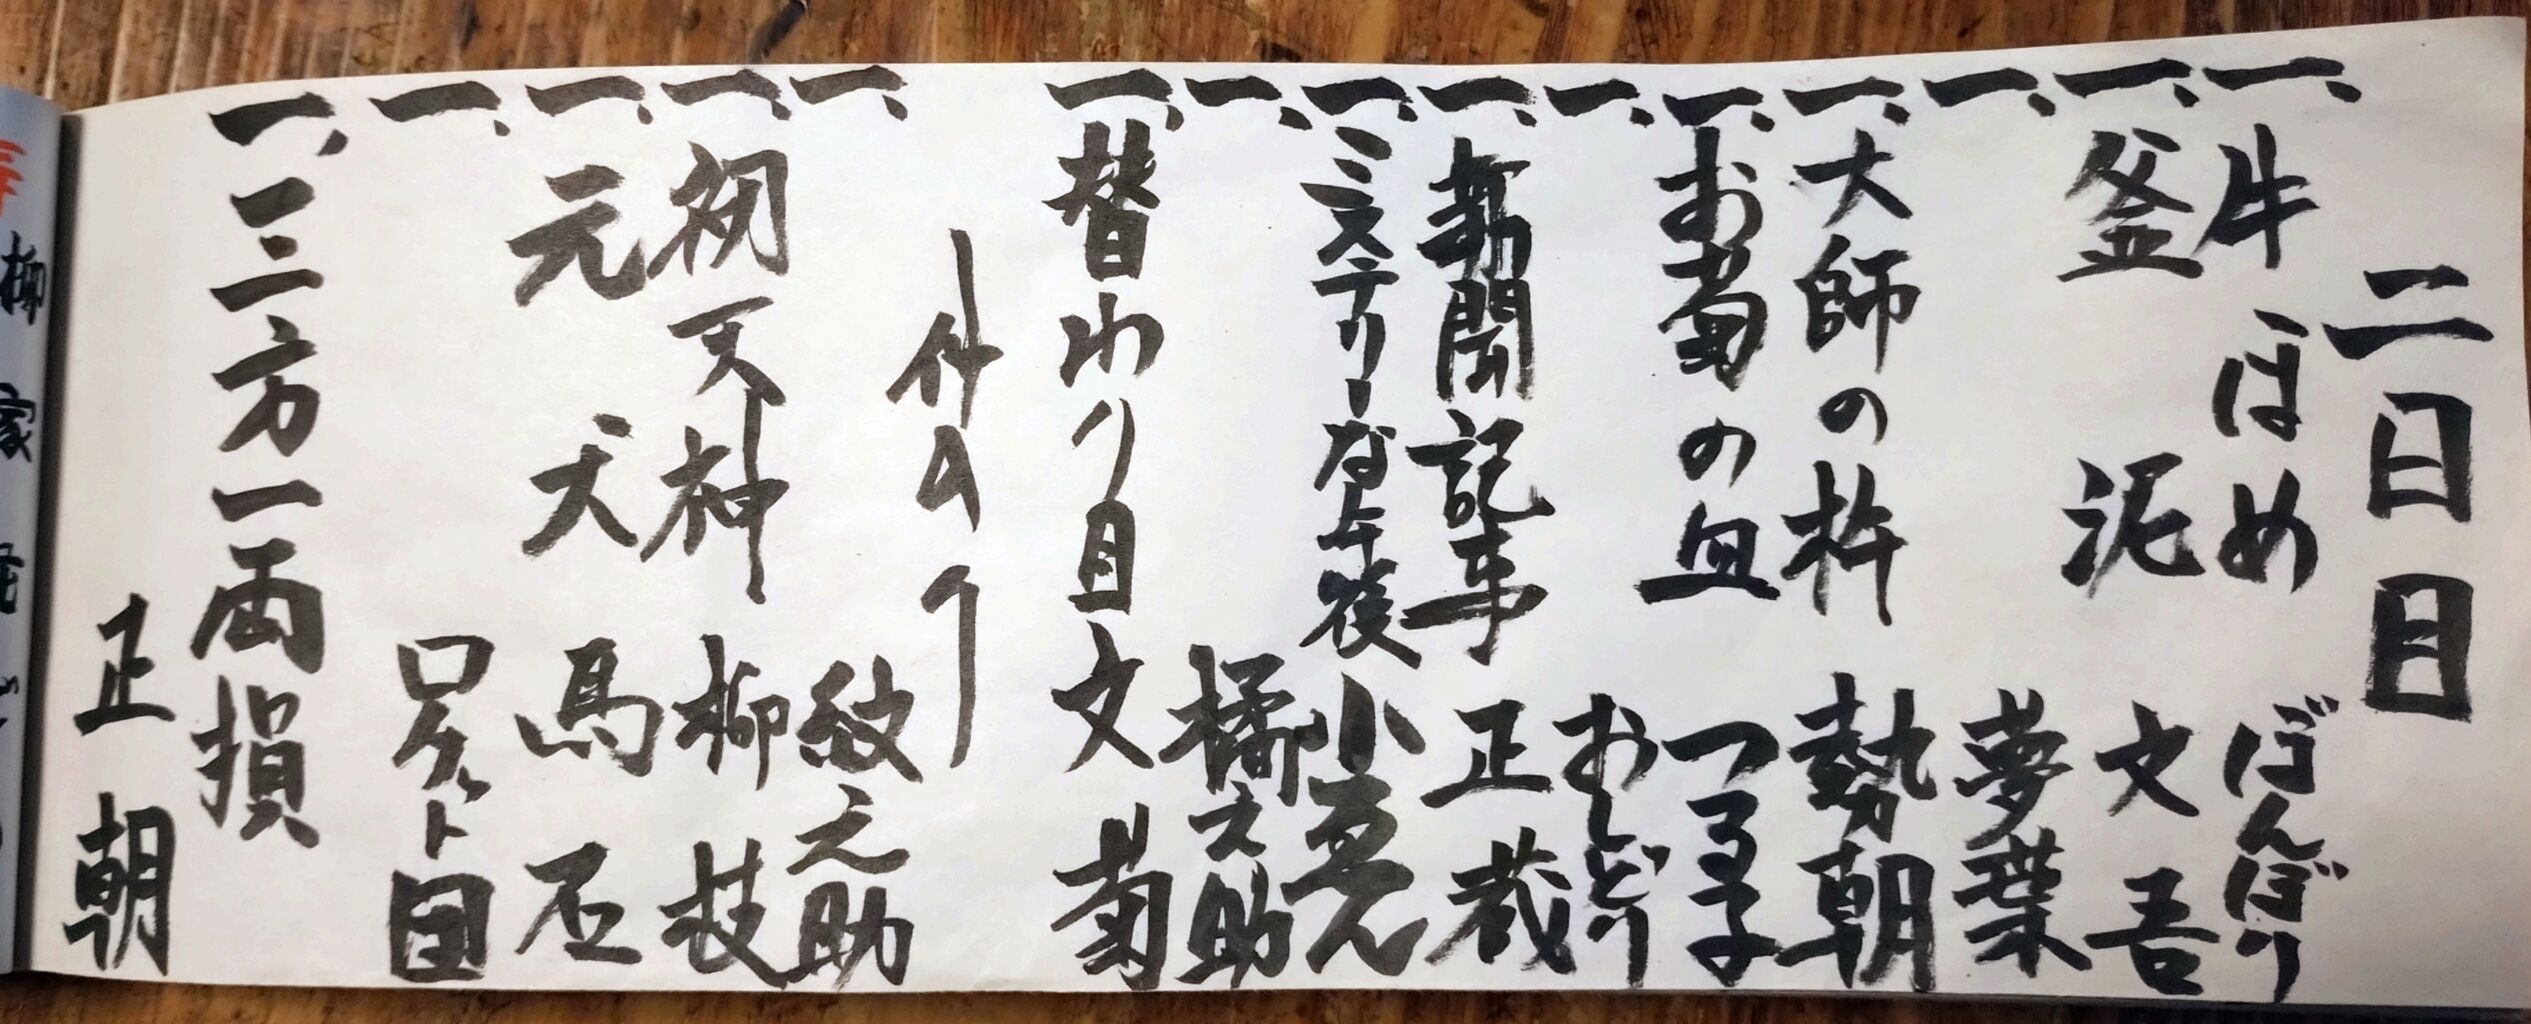 二日目
一、牛ほめ ぼんぼり
一、釜泥 文吾
一、 夢葉
一、大師の杵 勢朝
一、お菊の皿 つる子
一、 おしどり
一、新聞記事 正蔵
一、ミステリーな午後 小ゑん
一、 橘之助
一、替わり目 文菊
仲入り
一、 紋之助
一、初天神 柳枝
一、元犬 馬石
一、 ロケット団
一、三方一両損
正朝
柳家